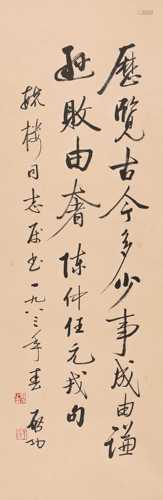 歷覽古今多少事成由謙
遜敗由奢 陳仲任元戎句
同志屬書一九八三年春 啟功